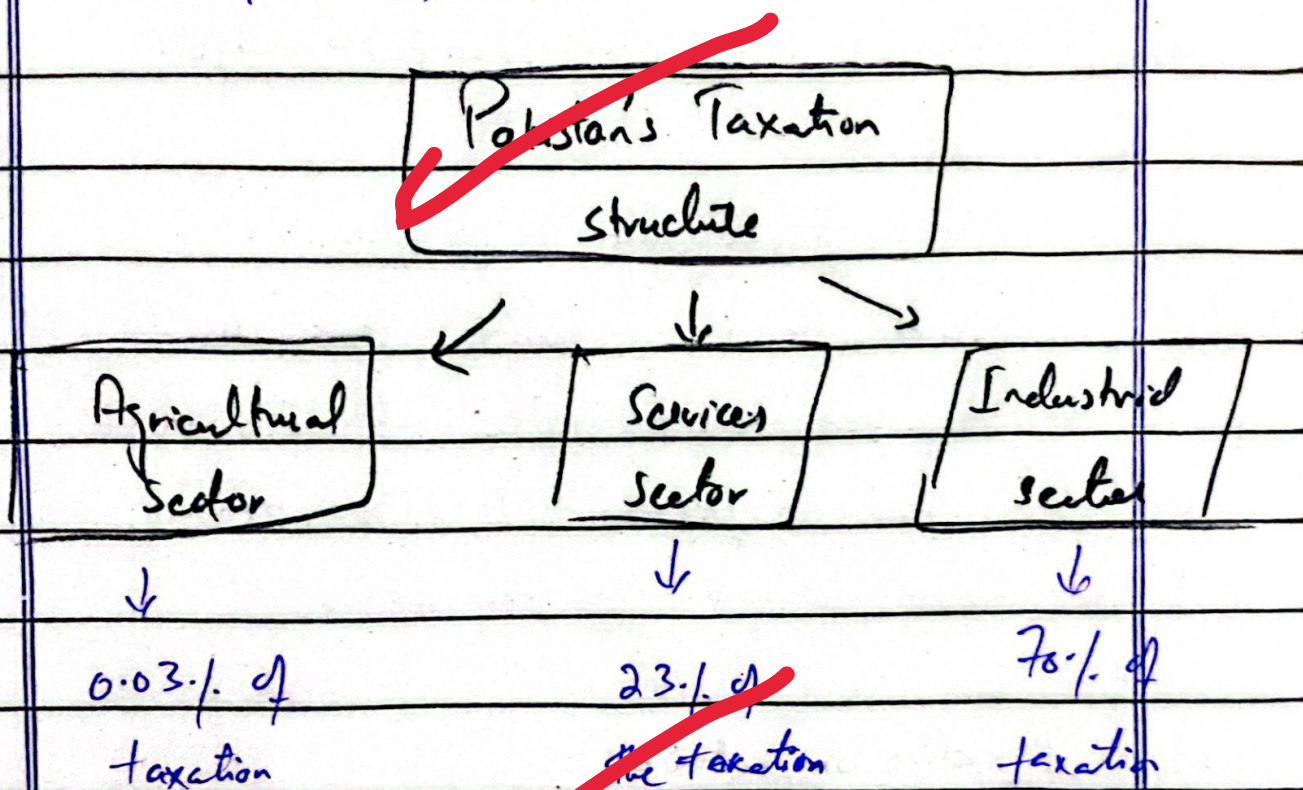 Pakistan's Taxation
structure
Agricultural
Sector
Services
Sector
Industrial
sector
0.03% of
taxation
23% of
the taxation
70% of
taxation